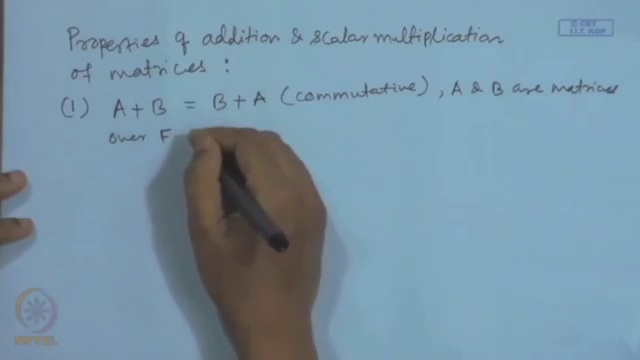 Properties of addition & scalar multiplication
of matrices :
(1) A + B = B + A (commutative), A & B are matrices
over F
© CET
I.I.T. KGP
NPTEL